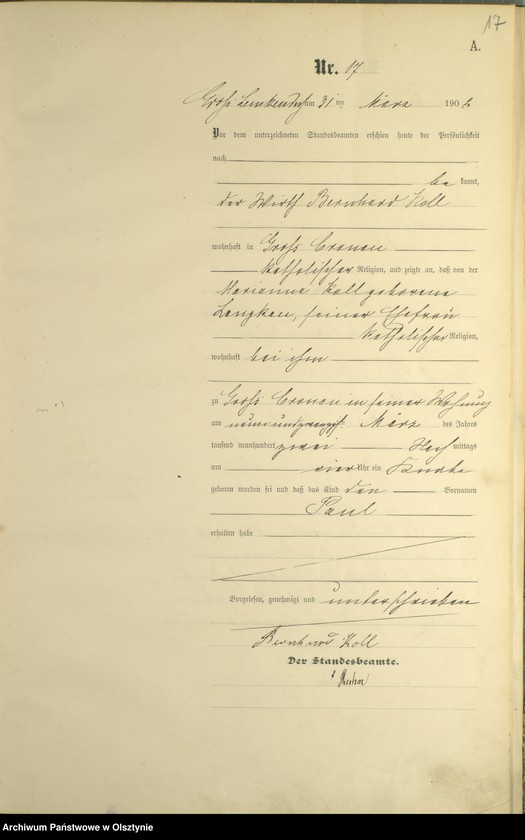 17
A.
Nr. 17
Groß Lemkendorf am 31 ten März 1902
Vor dem unterzeichneten Standesbeamten erschien heute der Persönlichkeit
nach
be kannt,
der Wirth Bernhard Koll
wohnhaft in Groß Cronau
katholischer Religion, und zeigte an, daß von der
Marianna Koll geborene
seiner Ehefrau
katholischer Religion,
wohnhaft bei ihm
zu Groß Cronau in seiner Wohnung
am neunundzwanzigsten März des Jahres
tausend neunhundert zwei Nach mittags
um vier Uhr ein Knabe
geboren worden sei und daß das Kind den Vornamen
Paul
erhalten habe
Vorgelesen, genehmigt und unterschrieben
Bernhard Koll
Der Standesbeamte.
Archiwum Państwowe w Olsztynie